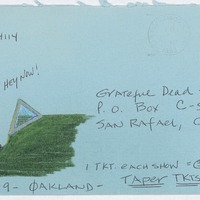 4114
Hey Now!
Grateful Dead
P.O. Box C-S
San Rafael, C
1 TKT. each show =
9 - Oakland -
Taper TKTS